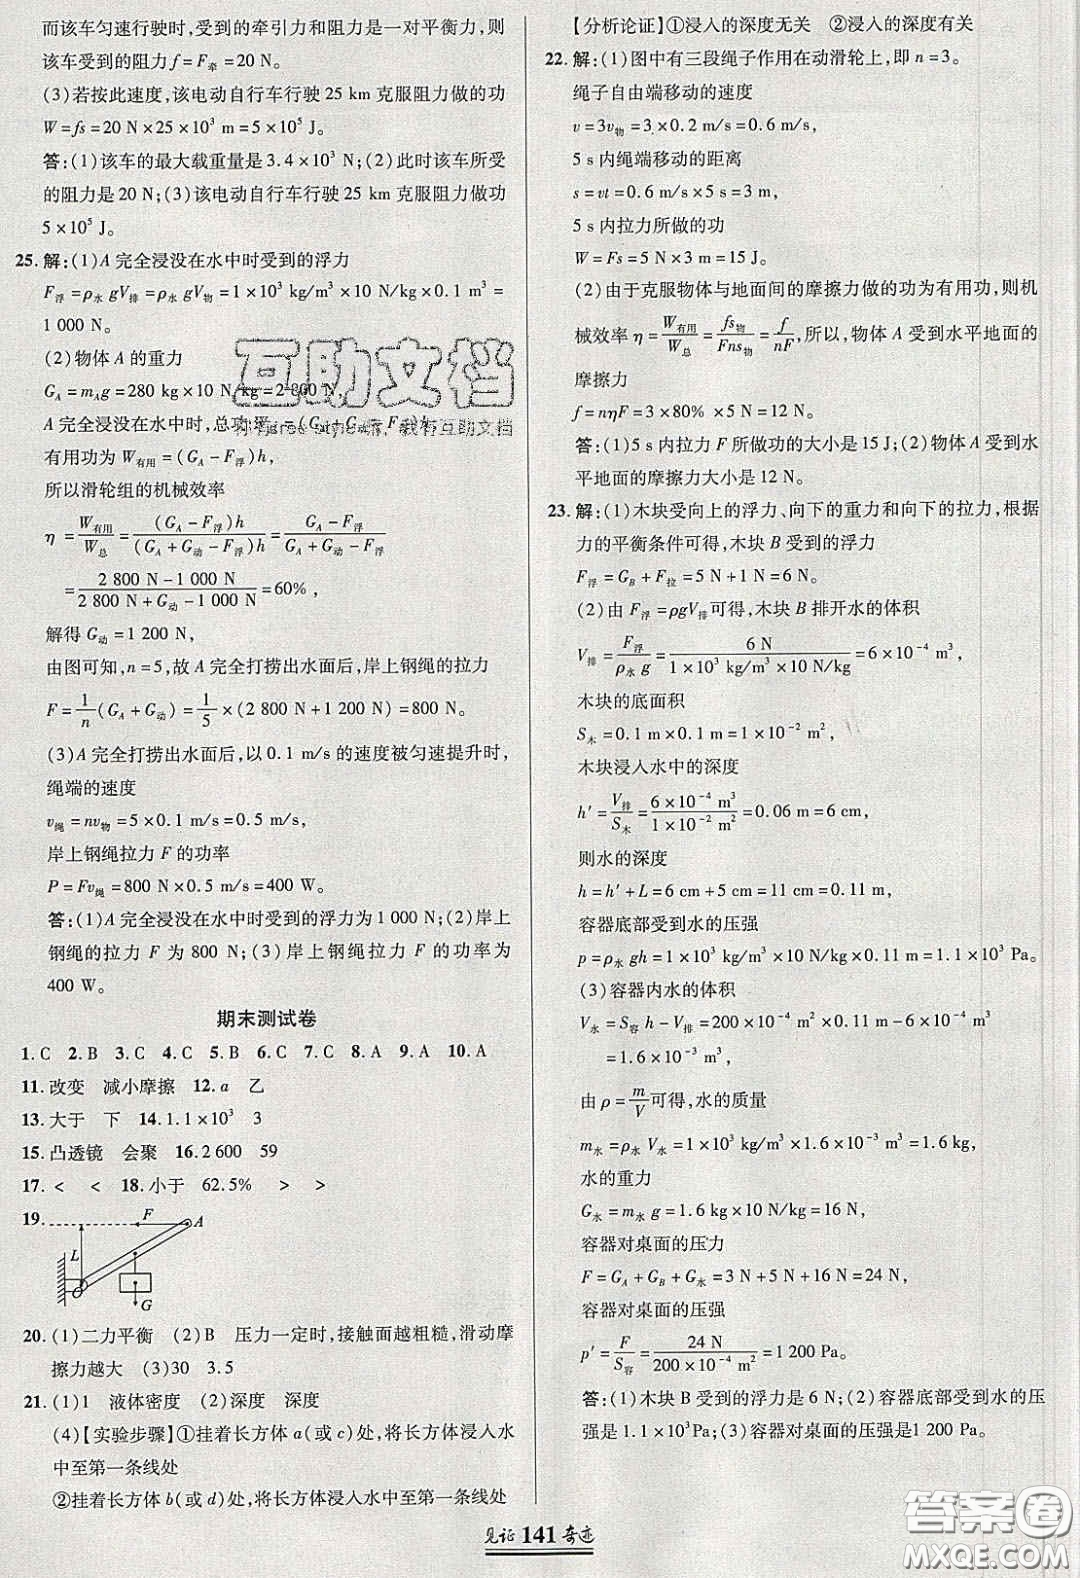 而该车匀速行驶时,受到的牵引力和阻力是一对平衡力,则
该车受到的阻力 f=F牵=20 N。
(3)若按此速度,该电动自行车行驶 25 km 克服阻力做的功
W=fs=20 N×25×10³ m=5×10⁵ J。
答:(1)该车的最大载重量是3.4×10³ N;(2)此时该车所受
的阻力是 20 N;(3)该电动自行车行驶 25 km 克服阻力做功
5×10⁵ J。
25.解:(1)A 完全浸没在水中时受到的浮力
F浮=ρ水 gV排=ρ水 gV物=1×10³ kg/m³×10 N/kg×0.1 m³=
1 000 N。
(2)物体 A 的重力
G_A=m_A g=280 kg×10 N/kg=2 800 N,
A 完全浸没在水中时,总功
有用功为 W有用=(G_A-F浮)h,
所以滑轮组的机械效率
η=W有用/W总=(G_A-F浮)h/(G_A+G动-F浮)h=(G_A-F浮)/(G_A+G动-F浮)
=(2 800 N-1 000 N)/(2 800 N+G动-1 000 N)=60%,
解得 G动=1 200 N,
由图可知,n=5,故 A 完全打捞出水面后,岸上钢绳的拉力
F=1/n(G_A+G动)=1/5×(2 800 N+1 200 N)=800 N。
(3)A 完全打捞出水面后,以 0.1 m/s 的速度被匀速提升时,
绳端的速度
v绳=nv物=5×0.1 m/s=0.5 m/s,
岸上钢绳拉力 F 的功率
P=Fv绳=800 N×0.5 m/s=400 W。
答:(1)A 完全浸没在水中时受到的浮力为 1 000 N;(2)岸上
钢绳的拉力 F 为 800 N;(3)岸上钢绳拉力 F 的功率为
400 W。
期末测试卷
1.C 2.B 3.C 4.C 5.B 6.C 7.C 8.A 9.A 10.A
11.改变 减小摩擦 12.a 乙
13.大于 下 14.1.1×10³ 3
15.凸透镜 会聚 16.2 600 59
17.< < 18.小于 62.5% > >
19.
F
A
L
O
G
20.(1)二力平衡 (2)B 压力一定时,接触面越粗糙,滑动摩
擦力越大 (3)30 3.5
21.(1)1 液体密度 (2)深度 深度
(4)【实验步骤】①挂着长方体 a(或 c)处,将长方体浸入水
中至第一条线处
②挂着长方体 b(或 d)处,将长方体浸入水中至第一条线处
【分析论证】①浸入的深度无关 ②浸入的深度有关
22.解:(1)图中有三段绳子作用在动滑轮上,即 n=3。
绳子自由端移动的速度
v=3v物=3×0.2 m/s=0.6 m/s,
5 s 内绳端移动的距离
s=vt=0.6 m/s×5 s=3 m,
5 s 内拉力所做的功
W=Fs=5 N×3 m=15 J。
(2)由于克服物体与地面间的摩擦力做的功为有用功,则机
械效率 η=W有用/W总=fs物/Fns物=f/nF,所以,物体 A 受到水平地面的
摩擦力
f=nηF=3×80%×5 N=12 N。
答:(1)5 s 内拉力 F 所做功的大小是 15 J;(2)物体 A 受到水
平地面的摩擦力大小是 12 N。
23.解:(1)木块受向上的浮力、向下的重力和向下的拉力,根据
力的平衡条件可得,木块 B 受到的浮力
F浮=G_B+F拉=5 N+1 N=6 N。
(2)由 F浮=ρgV排可得,木块 B 排开水的体积
V排=F浮/ρ水 g=6 N/(1×10³ kg/m³×10 N/kg)=6×10⁻⁴ m³,
木块的底面积
S木=0.1 m×0.1 m=1×10⁻² m²,
木块浸入水中的深度
h′=V排/S木=6×10⁻⁴ m³/1×10⁻² m²=0.06 m=6 cm,
则水的深度
h=h′+L=6 cm+5 cm=11 cm=0.11 m,
容器底部受到水的压强
p=ρ水 gh=1×10³ kg/m³×10 N/kg×0.11 m=1.1×10³ Pa。
(3)容器内水的体积
V水=S容 h-V排=200×10⁻⁴ m²×0.11 m-6×10⁻⁴ m³
=1.6×10⁻³ m³,
由 ρ=m/V可得,水的质量
m水=ρ水 V水=1×10³ kg/m³×1.6×10⁻³ m³=1.6 kg,
水的重力
G水=m水 g=1.6 kg×10 N/kg=16 N,
容器对桌面的压力
F=G_A+G_B+G水=3 N+5 N+16 N=24 N,
容器对桌面的压强
p′=F/S容=24 N/200×10⁻⁴ m²=1 200 Pa。
答:(1)木块 B 受到的浮力是 6 N;(2)容器底部受到水的压
强是 1.1×10³Pa;(3)容器对桌面的压强是1 200 Pa。
见证 141 奇迹
互助文档
答案圈
MXQE.COM